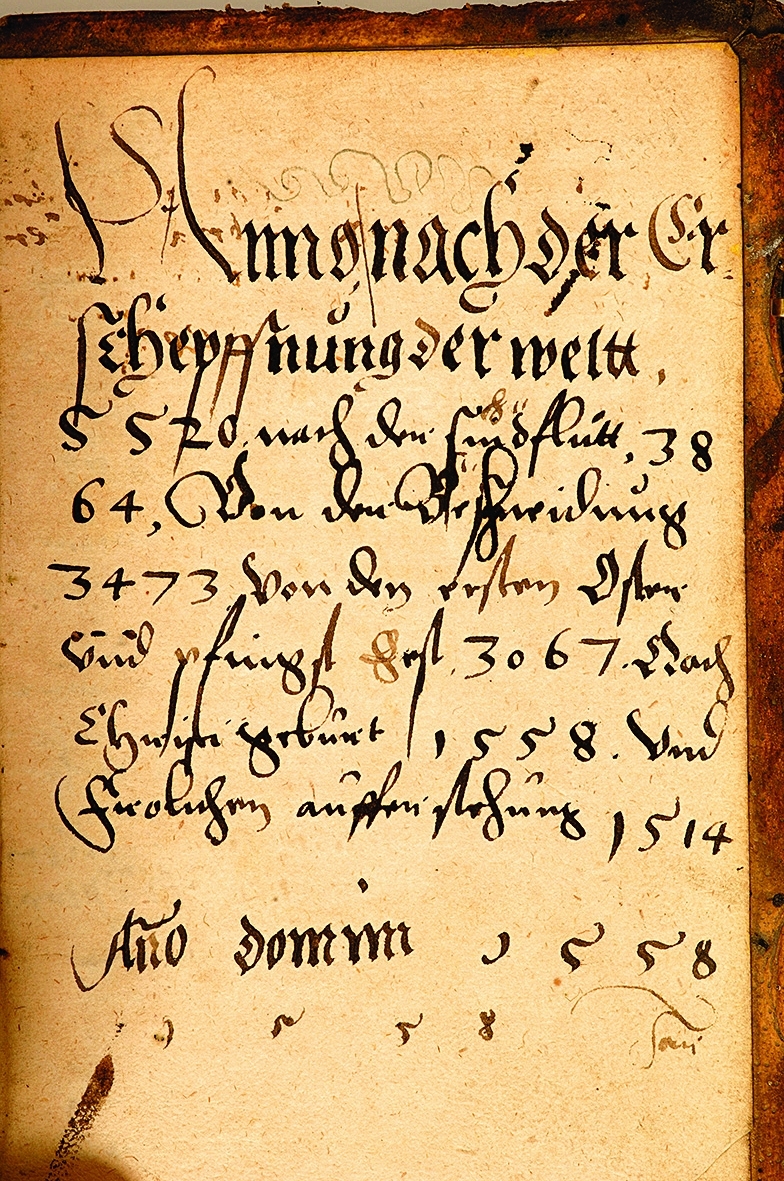 Anno nach der Er
schepffnung der weltt.
5 5 20. nach der sindflutt, 38
64, Von der Beschneidung
3473 Von den ersten Osten
Vnd pfingst Fest. 3067. Nach
Christi geburt 1558. Vnd
Frolichen aufferstehung 1514
Año domini 1 5 5 8
1 5 5 8